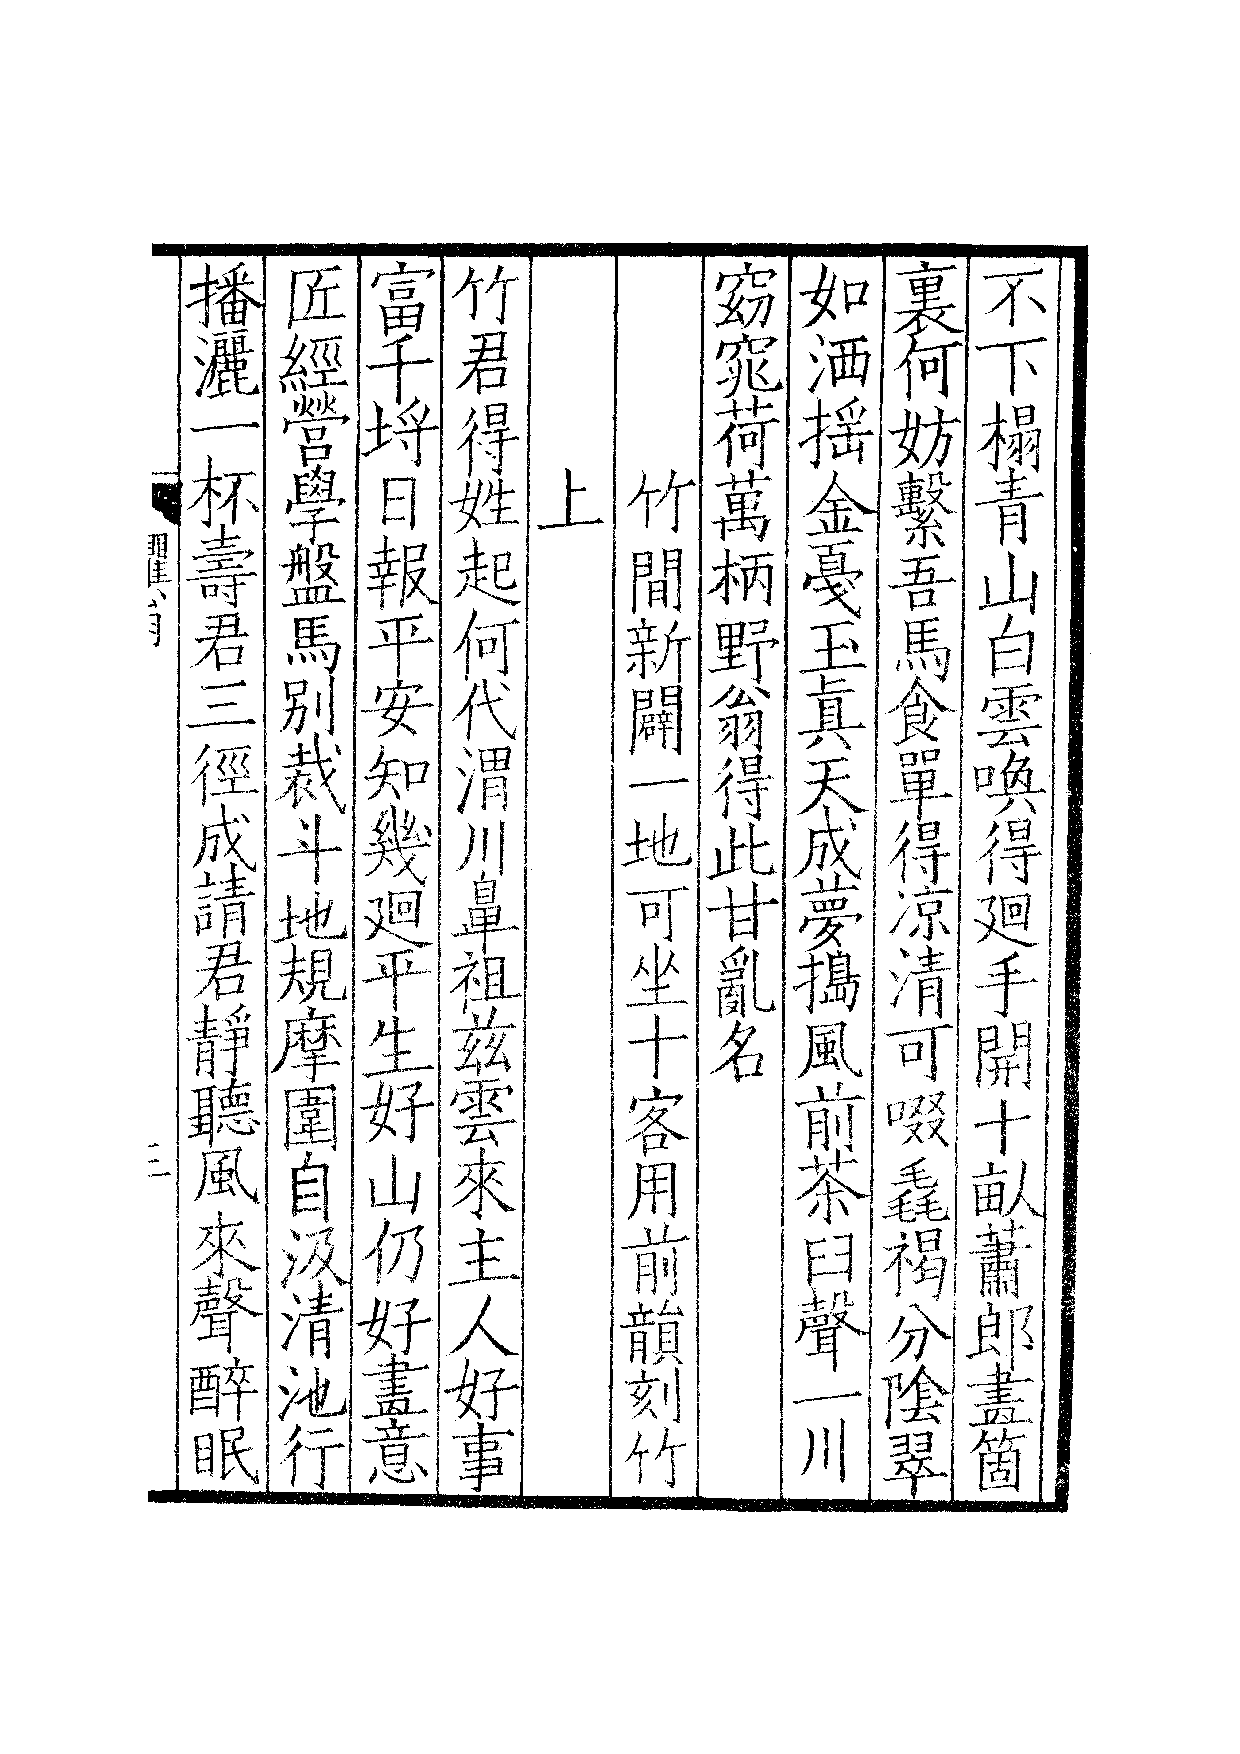 不下榻青山白雲喚得廻手開十畝蕭郎畫箇
裏何妨繫吾馬食單得凉清可啜毳褐分陰翠
如洒揺金戞玉真天成夢搗風前茶臼聲一川
窈窕荷萬柄野翁得此甘亂名
竹間新闢一地可坐十客用前韻刻竹
上
竹君得姓起何代渭川鼻祖兹雲來主人好事
富千埒日報平安知幾廻平生好山仍好畫意
匠經營學盤馬别裁斗地規摩圍自汲清池行
播灑一杯壽君三徑成請君靜聽風來聲醉眠